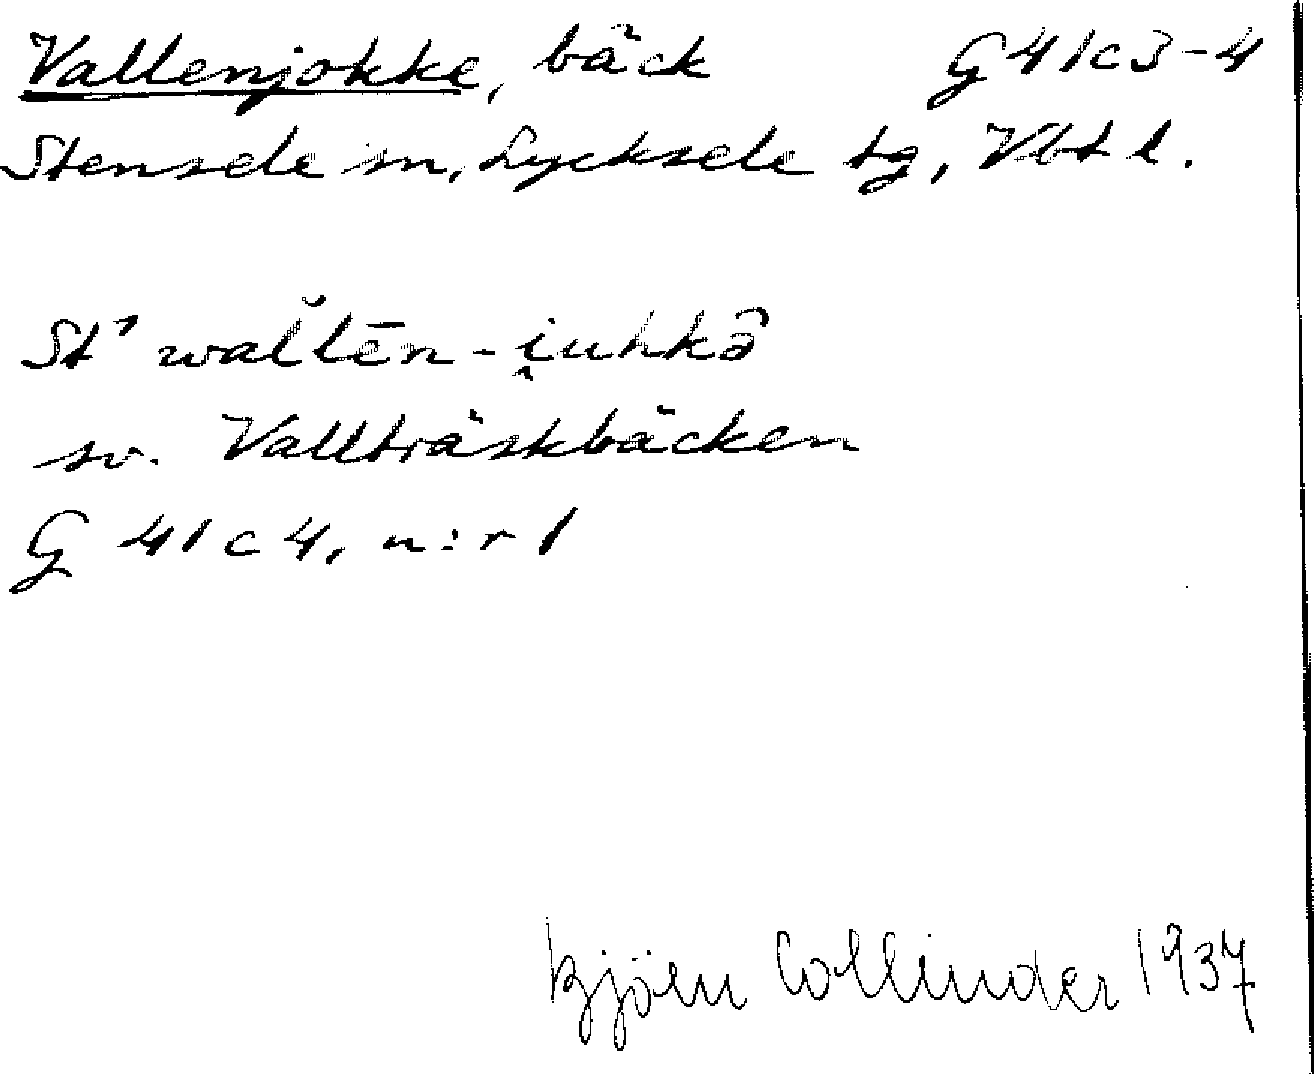 Vallenjokke, bäck G41c3-4
Stensele sn, Lycksele tg, Vbt l.
St' wal̆lēn-i̯uhkə̑
sv. Vallträskbäcken
G 41c4, n:r 1
Björn Collinder 1937